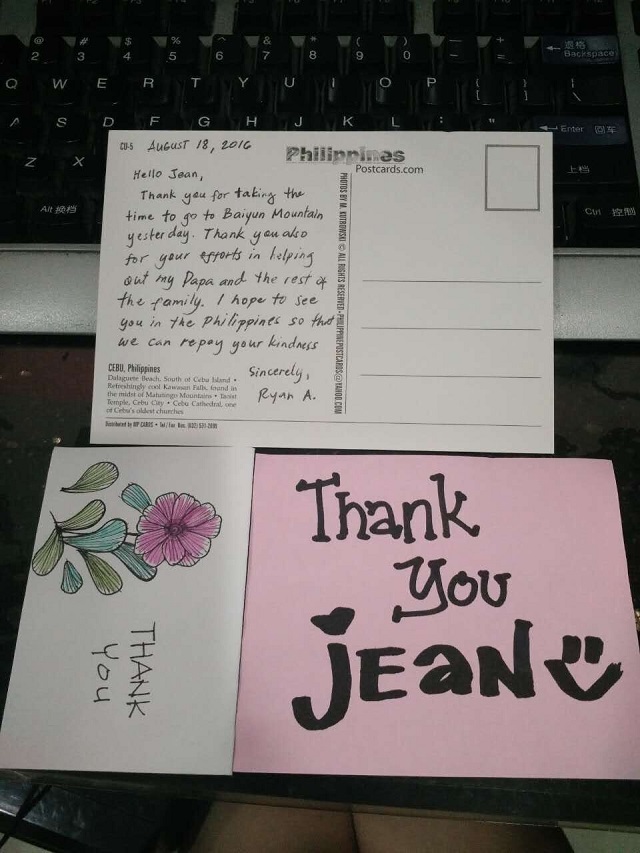 @ # $ % ^ & * ( ) _ +
2 3 4 5 6 7 8 9 0 - =
退格
Backspace
Q W E R T Y U I O P { }
[ ] \
A S D F G H J K L : "
Enter 回车
Z X
上档
Alt 换档
Ctrl 控制
CU-5 AUGUST 18, 2016
Philippines
Postcards.com
Hello Jean,
Thank you for taking the
time to go to Baiyun Mountain
yesterday. Thank you also
for your efforts in helping
out my Papa and the rest of
the family. I hope to see
you in the Philippines so that
we can repay your kindness
Sincerely,
Ryan A.
CEBU, Philippines
Dalaguete Beach, South of Cebu Island •
Refreshingly cool Kawasan Falls, found in
the midst of Malutingo Mountains • Taoist
Temple, Cebu City • Cebu Cathedral, one
of Cebu's oldest churches
Distributed by MP CARDS • Tel / Fax Nos. (632) 531-2695
PHOTOS BY M. KOTROWSKI © ALL RIGHTS RESERVED•PHILIPPINEPOSTCARDS@YAHOO.COM
THANK
You
Thank
You
JEAN